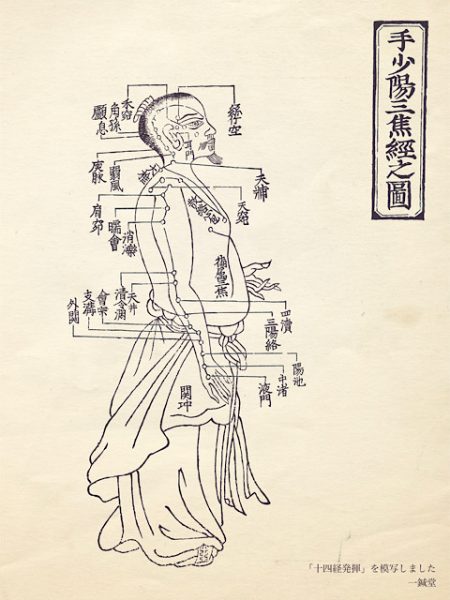 手少陽三焦經之圖
禾窌
角孫
顱息
翳風
天牖
肩窌
臑會
消濼
天窌
天井
清冷淵
會宗
支溝
外關
四瀆
三陽絡
陽池
中渚
液門
関冲
「十四経発揮」を模写しました
一鍼堂